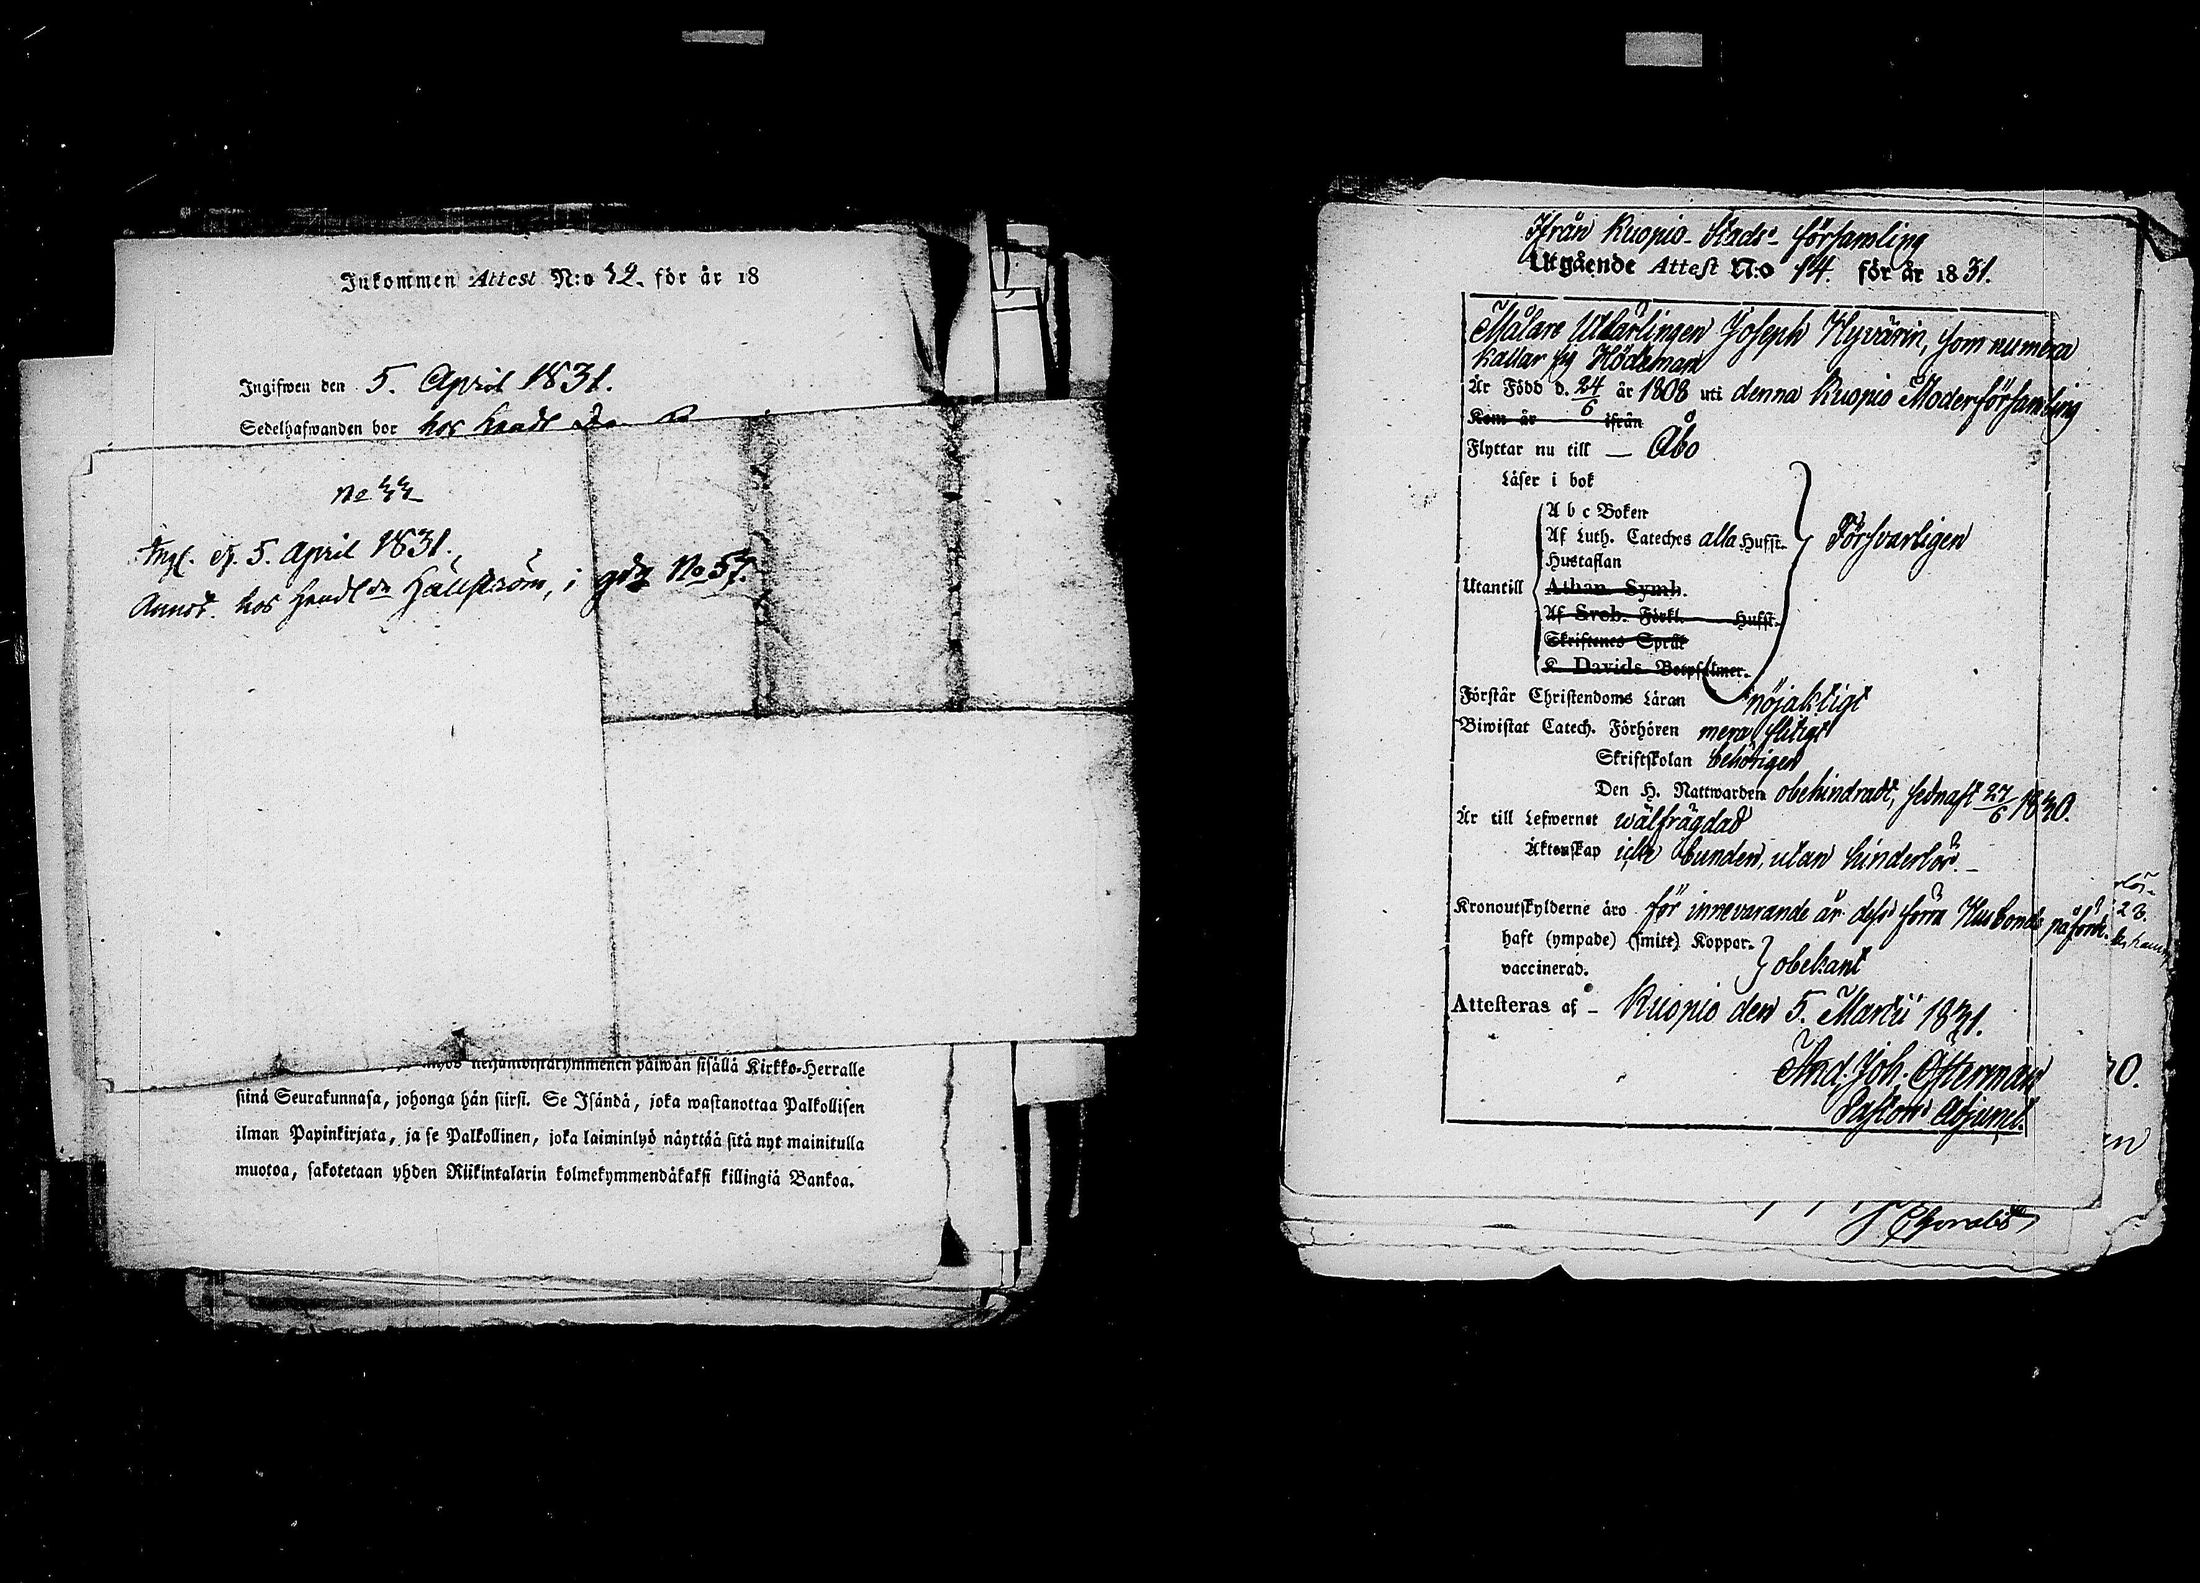 Inkommen Attest N:o 42. för år 18
Ingifwen den 5. April 1831.
Sedelhafwanden bor hos Handl
No 44
Ingl. d. 5. April 1831.
Annot. hos Handl:dn Hällström, i gdn No 57.
neljäntoistakymmenen päiwän sisällä Kirkko-Herralle
siinä Seurakunnasa, johonga hän siirsi. Se Isändä, joka wastanottaa Palkollisen
ilman Papinkirjata, ja se Palkollinen, joka laiminlyö näyttää sitä nyt mainitulla
muotoa, sakotetaan yhden Riikintalarin kolmekymmendäkaksi killingiä Bankoa.
Ifrån Kuopio Stads- församling
Utgående Attest N:o 14. för år 1831.
Målare Utlärlingen Joseph Hyvärin, som numera
kallar sig Hödelman
Är Född d. 24/6 år 1808 uti denna Kuopio Moderförsamling
Kom år ifrån
Flyttar nu till — Åbo
Läser i bok
A b c Boken
Af Luth. Cateches alla Hufst.
Hustaflan
Försvarligen
Utantill
Athan. Symb.
Af Sveb. Förkl. Hufst.
Skriftenes Språk
K. Davids Botpsalmer.
Förstår Christendoms Läran nöjaktigt
Biwistat Catech. Förhören mera flitigt
Skriftskolan behörigen
Den H. Nattwarden obehindradt, sednast 27/6 1830.
Är till Lefwernet wälfrägdad
Äktenskap icke bunden, utan hinderlös. -
Kronoutskylderne äro för innevarande år dess förra Husbonde påförde.
haft (ympade) (smitt) Koppor.
vaccinerad.
obekant
Attesteras af - Kuopio den 5. Martii 1831.
And. Joh. Österman
Pastors Adjunct.